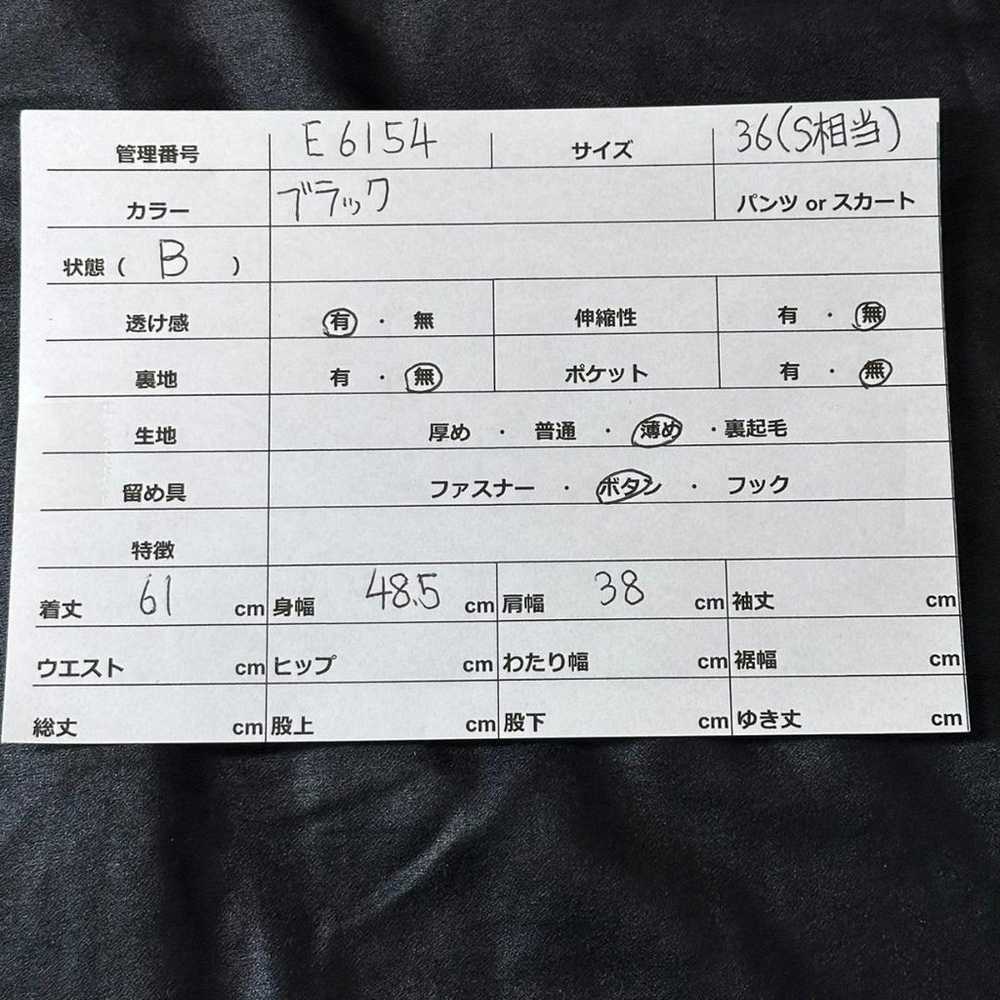 管理番号 E6154 サイズ 36(S相当)
カラー ブラック パンツ or スカート
状態 ( B )
透け感 有 ・ 無 伸縮性 有 ・ 無
裏地 有 ・ 無 ポケット 有 ・ 無
生地 厚め ・ 普通 ・ 薄め ・裏起毛
留め具 ファスナー ・ ボタン ・ フック
特徴
着丈 61 cm 身幅 48.5 cm 肩幅 38 cm 袖丈 cm
ウエスト cm ヒップ cm わたり幅 cm 裾幅 cm
総丈 cm 股上 cm 股下 cm ゆき丈 cm